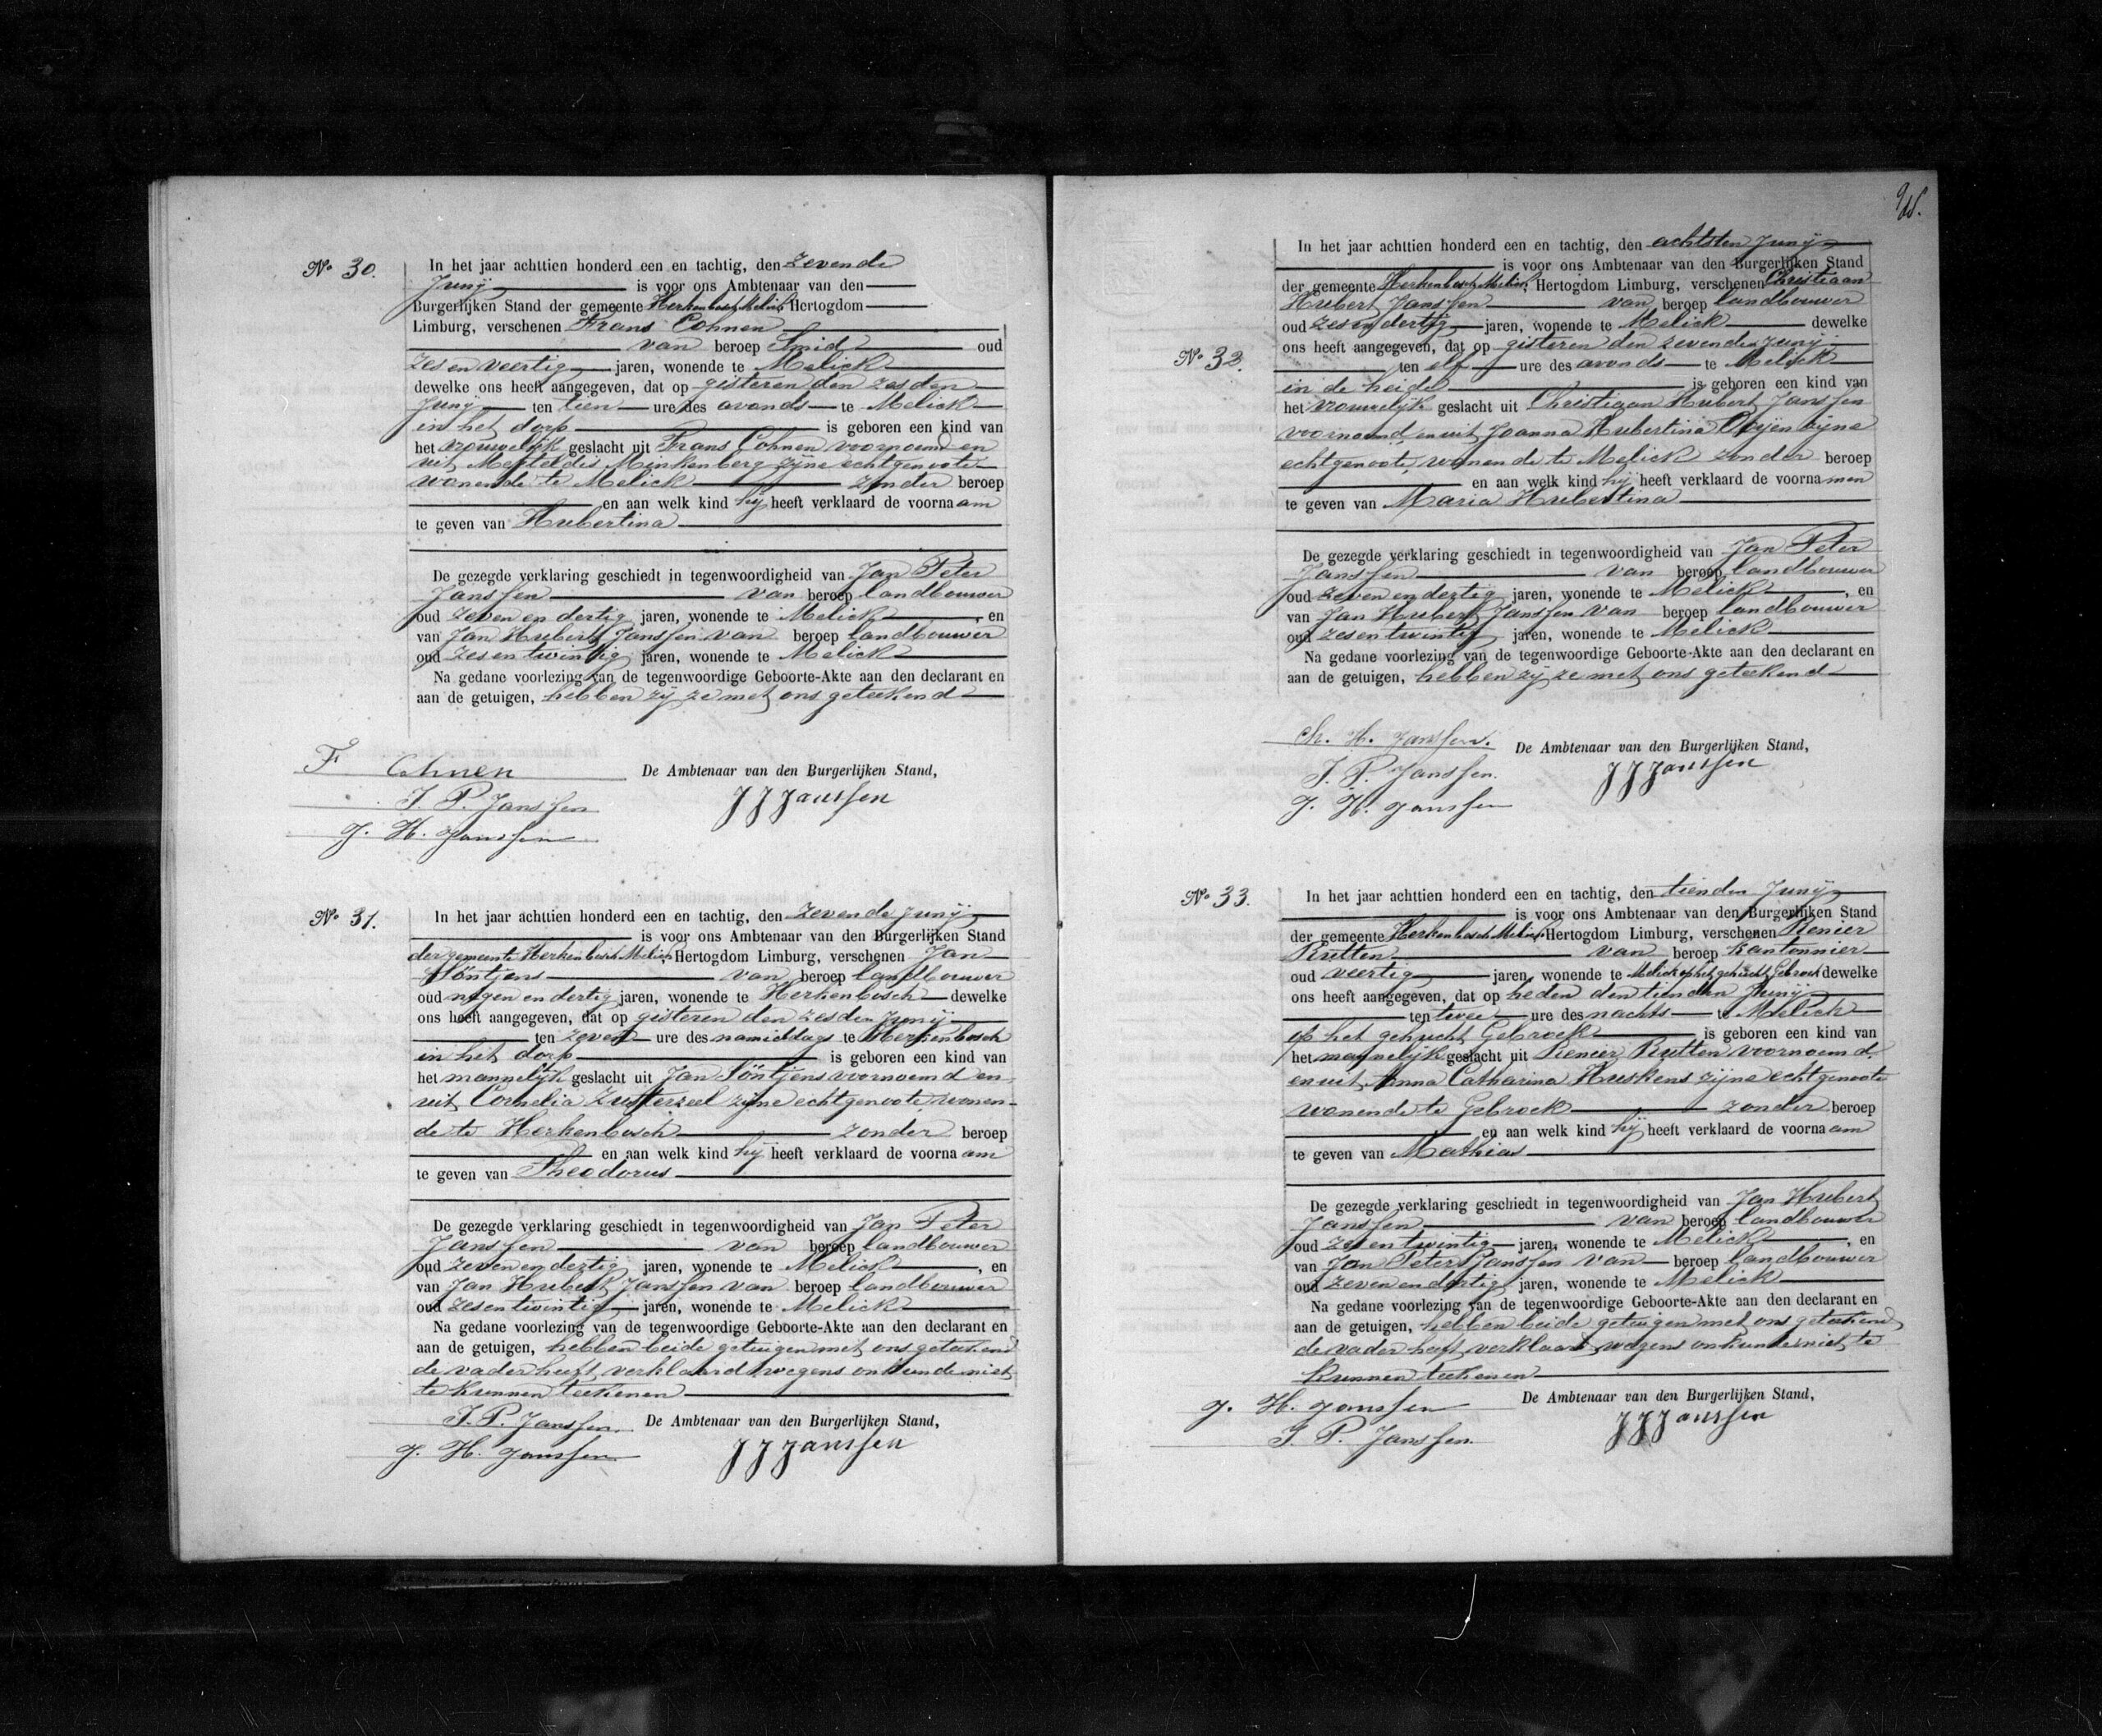 No 30.
In het jaar achttien honderd een en tachtig, den zevende
Junij is voor ons Ambtenaar van den
Burgerlijken Stand der gemeente Herkenbosch Melick Hertogdom
Limburg, verschenen Frans Cohnen
van beroep Smid oud
zes en veertig jaren, wonende te Melick
dewelke ons heeft aangegeven, dat op gisteren den zesden
Junij ten tien ure des avonds te Melick
in het dorp is geboren een kind van
het vrouwelijk geslacht uit Frans Cohnen voornoemd en
uit Minkenberg zijne echtgenoote
wonende te Melick zonder beroep
en aan welk kind hij heeft verklaard de voornaam
te geven van Hubertina
De gezegde verklaring geschiedt in tegenwoordigheid van Jan Peter
Janssen van beroep landbouwer
oud zeven en dertig jaren, wonende te Melick, en
van Jan Hubert Janssen van beroep landbouwer
oud zes en twintig jaren, wonende te Melick
Na gedane voorlezing van de tegenwoordige Geboorte-Akte aan den declarant en
aan de getuigen, hebben zij ze met ons geteekend
F Cohnen
De Ambtenaar van den Burgerlijken Stand,
J. P. Janssen
JJJanssen
J. H. Janssen
No 31.
In het jaar achttien honderd een en tachtig, den zevende Junij
is voor ons Ambtenaar van den Burgerlijken Stand
der gemeente Herkenbosch Melick, Hertogdom Limburg, verschenen Jan
Söntjens van beroep landbouwer
oud negen en dertig jaren, wonende te Herkenbosch dewelke
ons heeft aangegeven, dat op gisteren den zesden Junij
ten zeven ure des namiddags te Herkenbosch
in het dorp is geboren een kind van
het mannelijk geslacht uit Jan Söntjens voornoemd en
uit Cornelia Zusterzeel zijne echtgenoote, wonen-
de te Herkenbosch zonder beroep
en aan welk kind hij heeft verklaard de voornaam
te geven van Theodorus
De gezegde verklaring geschiedt in tegenwoordigheid van Jan Peter
Janssen van beroep landbouwer
oud zeven en dertig jaren, wonende te Melick, en
van Jan Hubert Janssen van beroep landbouwer
oud zes en twintig jaren, wonende te Melick
Na gedane voorlezing van de tegenwoordige Geboorte-Akte aan den declarant en
aan de getuigen, hebben beide getuigen met ons geteekend
de vader heeft verklaard wegens onkunde niet
te kunnen teekenen
J. P. Janssen. De Ambtenaar van den Burgerlijken Stand,
J. H. Janssen JJJanssen
In het jaar achttien honderd een en tachtig, den achtsten Junij
is voor ons Ambtenaar van den Burgerlijken Stand
der gemeente Herkenbosch Melick, Hertogdom Limburg, verschenen Christiaan
Hubert Janssen van beroep landbouwer
oud zes en dertig jaren, wonende te Melick dewelke
ons heeft aangegeven, dat op gisteren den zevenden Junij
No 32.
ten elf ure des avonds te Melick
in de heide is geboren een kind van
het vrouwelijk geslacht uit Christiaan Hubert Janssen
voornoemd en uit Joanna Hubertina zijne
echtgenoote, wonende te Melick zonder beroep
en aan welk kind hij heeft verklaard de voornamen
te geven van Maria Hubertina
De gezegde verklaring geschiedt in tegenwoordigheid van Jan Peter
Janssen van beroep landbouwer
oud zeven en dertig jaren, wonende te Melick, en
van Jan Hubert Janssen van beroep landbouwer
oud zes en twintig jaren, wonende te Melick
Na gedane voorlezing van de tegenwoordige Geboorte-Akte aan den declarant en
aan de getuigen, hebben zij ze met ons geteekend
Ch. H. Janssen.
De Ambtenaar van den Burgerlijken Stand,
J. P. Janssen.
JJJanssen
J. H. Janssen
No 33.
In het jaar achttien honderd een en tachtig, den tienden Junij
is voor ons Ambtenaar van den Burgerlijken Stand
der gemeente Herkenbosch Melick Hertogdom Limburg, verschenen Renier
Rutten van beroep kantonnier
oud veertig jaren, wonende te Melick op het gehucht Gebroek dewelke
ons heeft aangegeven, dat op heden den tienden Junij
ten twee ure des nachts te Melick
op het gehucht Gebroek is geboren een kind van
het mannelijk geslacht uit Renier Rutten voornoemd
en uit Anna Catharina Huskens zijne echtgenoote
wonende te Gebroek zonder beroep
en aan welk kind hij heeft verklaard de voornaam
te geven van Mathias
De gezegde verklaring geschiedt in tegenwoordigheid van Jan Hubert
Janssen van beroep landbouwer
oud zes en twintig jaren, wonende te Melick, en
van Jan Peter Janssen van beroep landbouwer
oud zeven en dertig jaren, wonende te Melick
Na gedane voorlezing van de tegenwoordige Geboorte-Akte aan den declarant en
aan de getuigen, hebben beide getuigen met ons geteekend,
de vader heeft verklaard wegens onkunde niet te
kunnen teekenen
De Ambtenaar van den Burgerlijken Stand,
J. H. Janssen
JJJanssen
J. P. Janssen.